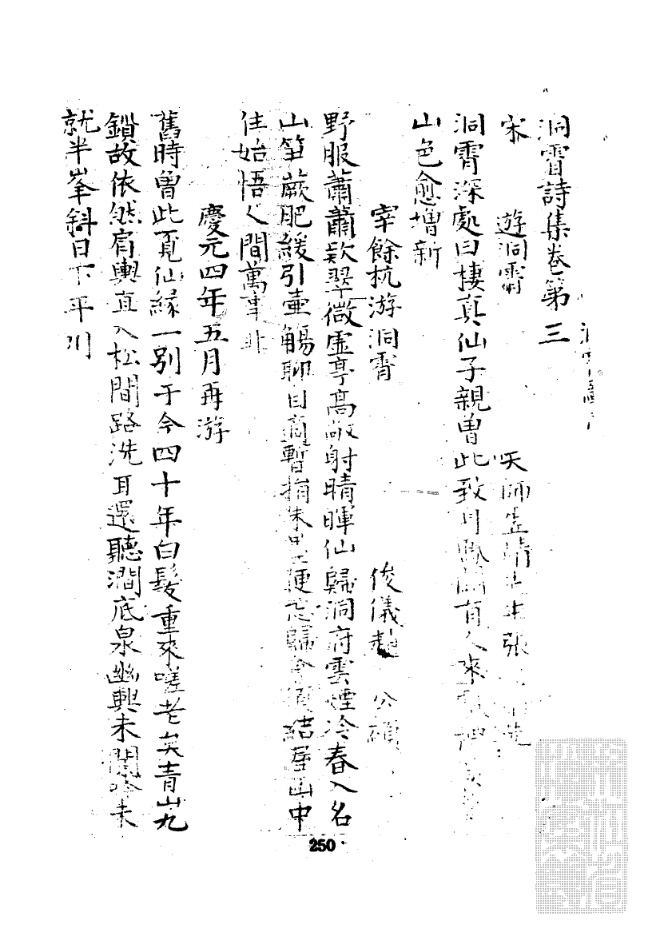 洞霄詩集卷第三
宋 遊洞霄 天師虛靖 張
洞霄深處曰棲真仙子親曾此致 有人來
山色愈增新
宰餘杭游洞霄 俊儀趙 公碩
野服蕭蕭欵翠微虛亭高敞射晴暉仙歸洞府雲煙冷春入名
山笋蕨肥緩引壺觴聊自適暫捐朱墨便忘歸 須結屋山中
住始悟人間萬事非
慶元四年五月再游
舊時曾此覔仙緣一別于今四十年白髮重來嗟老矣青山九
鎖故依然肩輿直入松間路洗耳還聽澗底泉幽興未闌吟未
就半峯斜日下平川
250